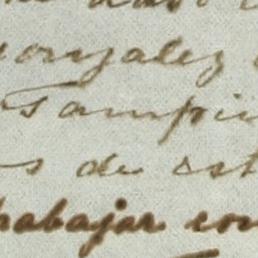 onzalez
Tampi
s de est
trabajar con